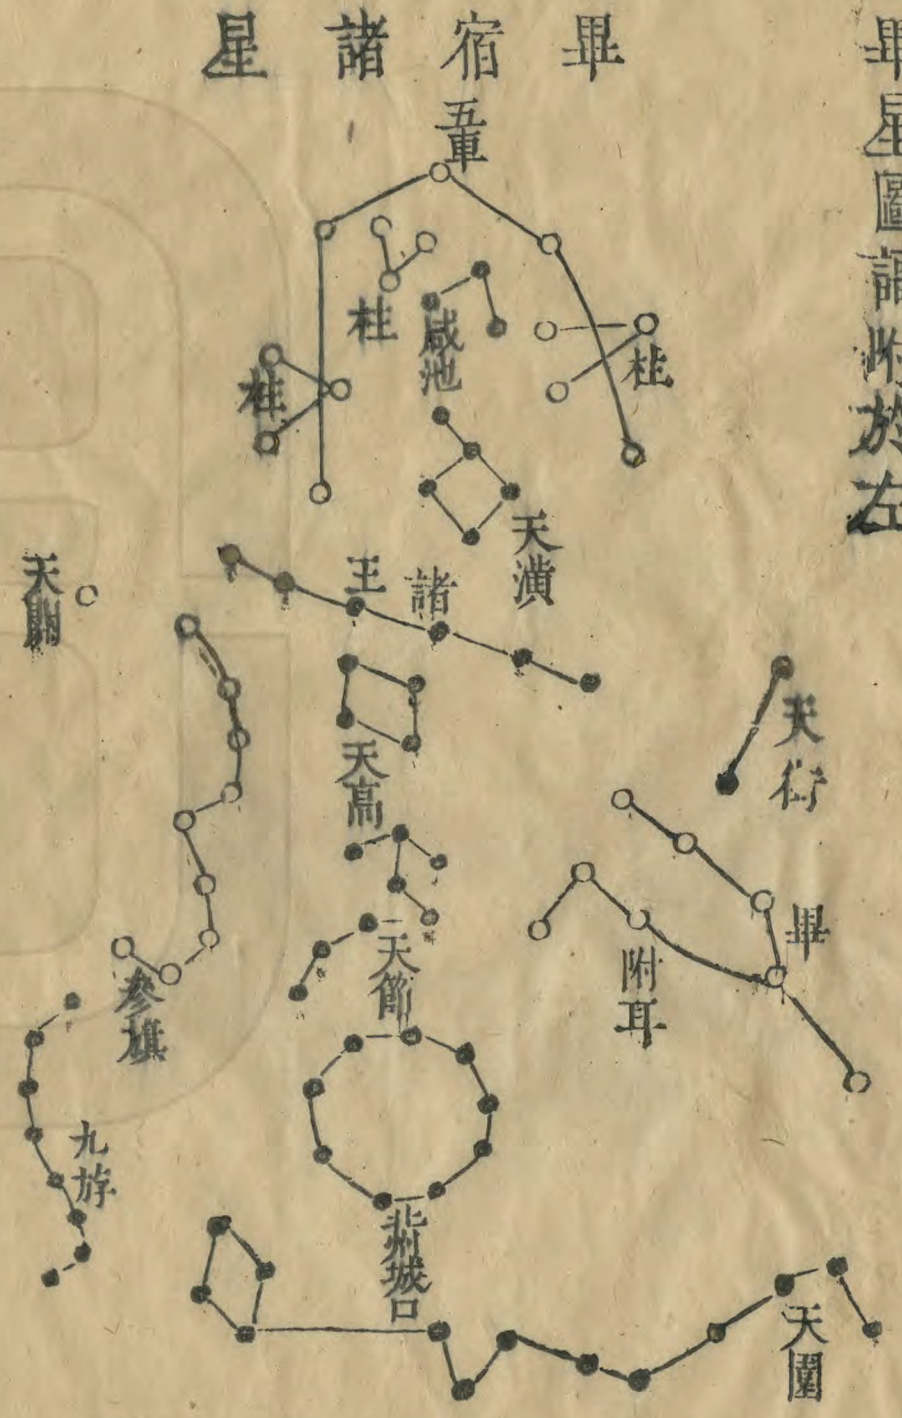 畢星圖謌附於左
畢宿諸星
五車
柱
柱
柱
咸池
天潢
諸王
天關
天高
天街
畢
附耳
天節
參旗
九斿
州城口
天園